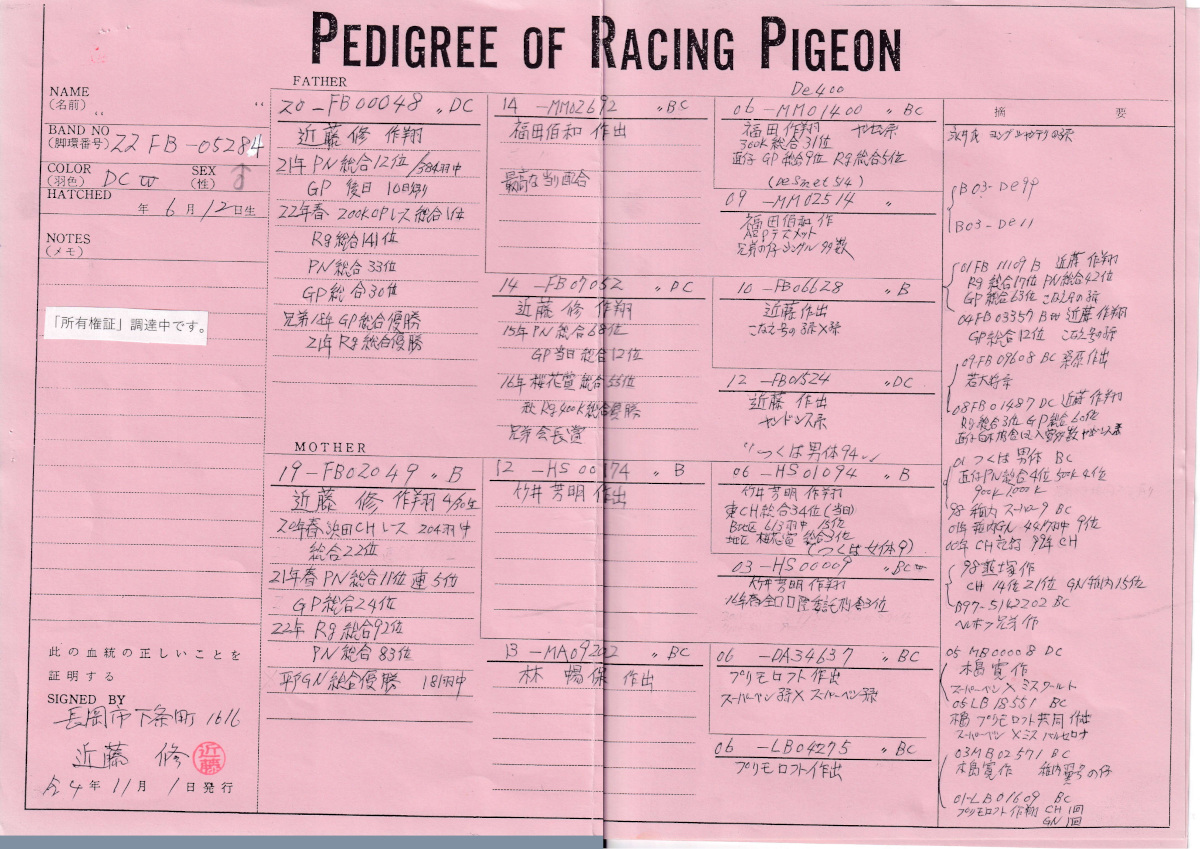 PEDIGREE OF RACING PIGEON
NAME
(名前)
BAND NO
(脚環番号) 22 FB -05284
COLOR
(羽色) DC w
SEX
(性) ♂
HATCHED
年 6 月 12 日生
NOTES
(メモ)
「所有権証」調達中です。
此の血統の正しいことを
証明する
SIGNED BY
長岡市下条町 1616
近藤 修
近藤
R4 年 11 月 1 日発行
FATHER
20 -FB00048 〃 DC
近藤 修 作翔
21年 PN 総合12位/384羽中
GP 後日
22年春 200K OPレス 総合1位
Rg 総合141位
PN 総合 33位
GP 総合30位
兄弟 GP 総合優勝
21年 Rg 総合優勝
MOTHER
19-FB02049 〃 B
近藤 修 作翔 4/30生
20年春浜田CHレス 204羽中
総合22位
21年春 PN 総合11位 連 5位
GP 総合24位
22年 Rg 総合92位
PN 総合 83位
GN 総合優勝 181羽中
14 -MM02692 〃 BC
福田伯和 作出
最高な当り配合
14 -FB07052 〃 DC
近藤 修 作翔
15年 PN 総合 68位
GP 当日 総合12位
16年 桜花賞 総合55位
秋 Rg 400K 総合優勝
兄弟 会長賞
12 -HS 00174 〃 B
竹井芳明 作出
13 -MA09202 〃 BC
林 暢保 作出
De 400
06 -MM01400 〃 BC
福田 作翔
300K 総合 31位
直仔 GP 総合9位 Rg 総合5位
(DeSmet 514)
09 -MM02514 〃
福田伯和 作
兄弟の仔 シングル 多数
10 -FB06628 〃 B
近藤作出
こなえ号の孫×孫
12 -FB01524 〃 DC
近藤 作出
ヤンセン系
"つくば男体94"
06 -HS01094 〃 B
竹井 芳明 作翔
東CH総合34位(当日)
B地区 613羽中 13位
地区 桜花賞 総合3位
(つくば女体9)
03 -HS00009 〃 BC w
竹井 芳明 作翔
06 -DA34637 〃 BC
プリモロフト 作出
スーパーベン 孫 × スーパーベン 孫
06 -LB04275 〃 BC
プリモロフト作出
摘 要
B03-De99
B03-De11
01FB 11109 B 近藤 作翔
Rg 総合17位 PN総合42位
GP 総合63位 こなえ号の孫
04FB 03357 B w 近藤 作翔
GP総合12位 こなえ号の孫
09FB 09608 BC 栗原 作出
若大将
08FB 01487 DC 近藤 作翔
Rg 総合3位 GP 総合 60位
01 つくば 男体 BC
直仔PN総合4位 500K 4位
900K 1000K
98 稚内 スーパー9 BC
01年 稚内GN 4417羽中 9位
00年 CH 99年 CH
CH 14位 21位 GN 稚内15位
B97-5142202 BC
05 MB 00008 DC
木島 寛 作
スーパーベン × ミスワールド
05LB 18551 BC
プリモロフト共同 作出
スーパーベン × ミス バルセロナ
03MB 02571 BC
木島寛 作 稚内 号 の仔
01-LB 01609 BC
プリモロフト 作翔 CH 1回
GN 1回